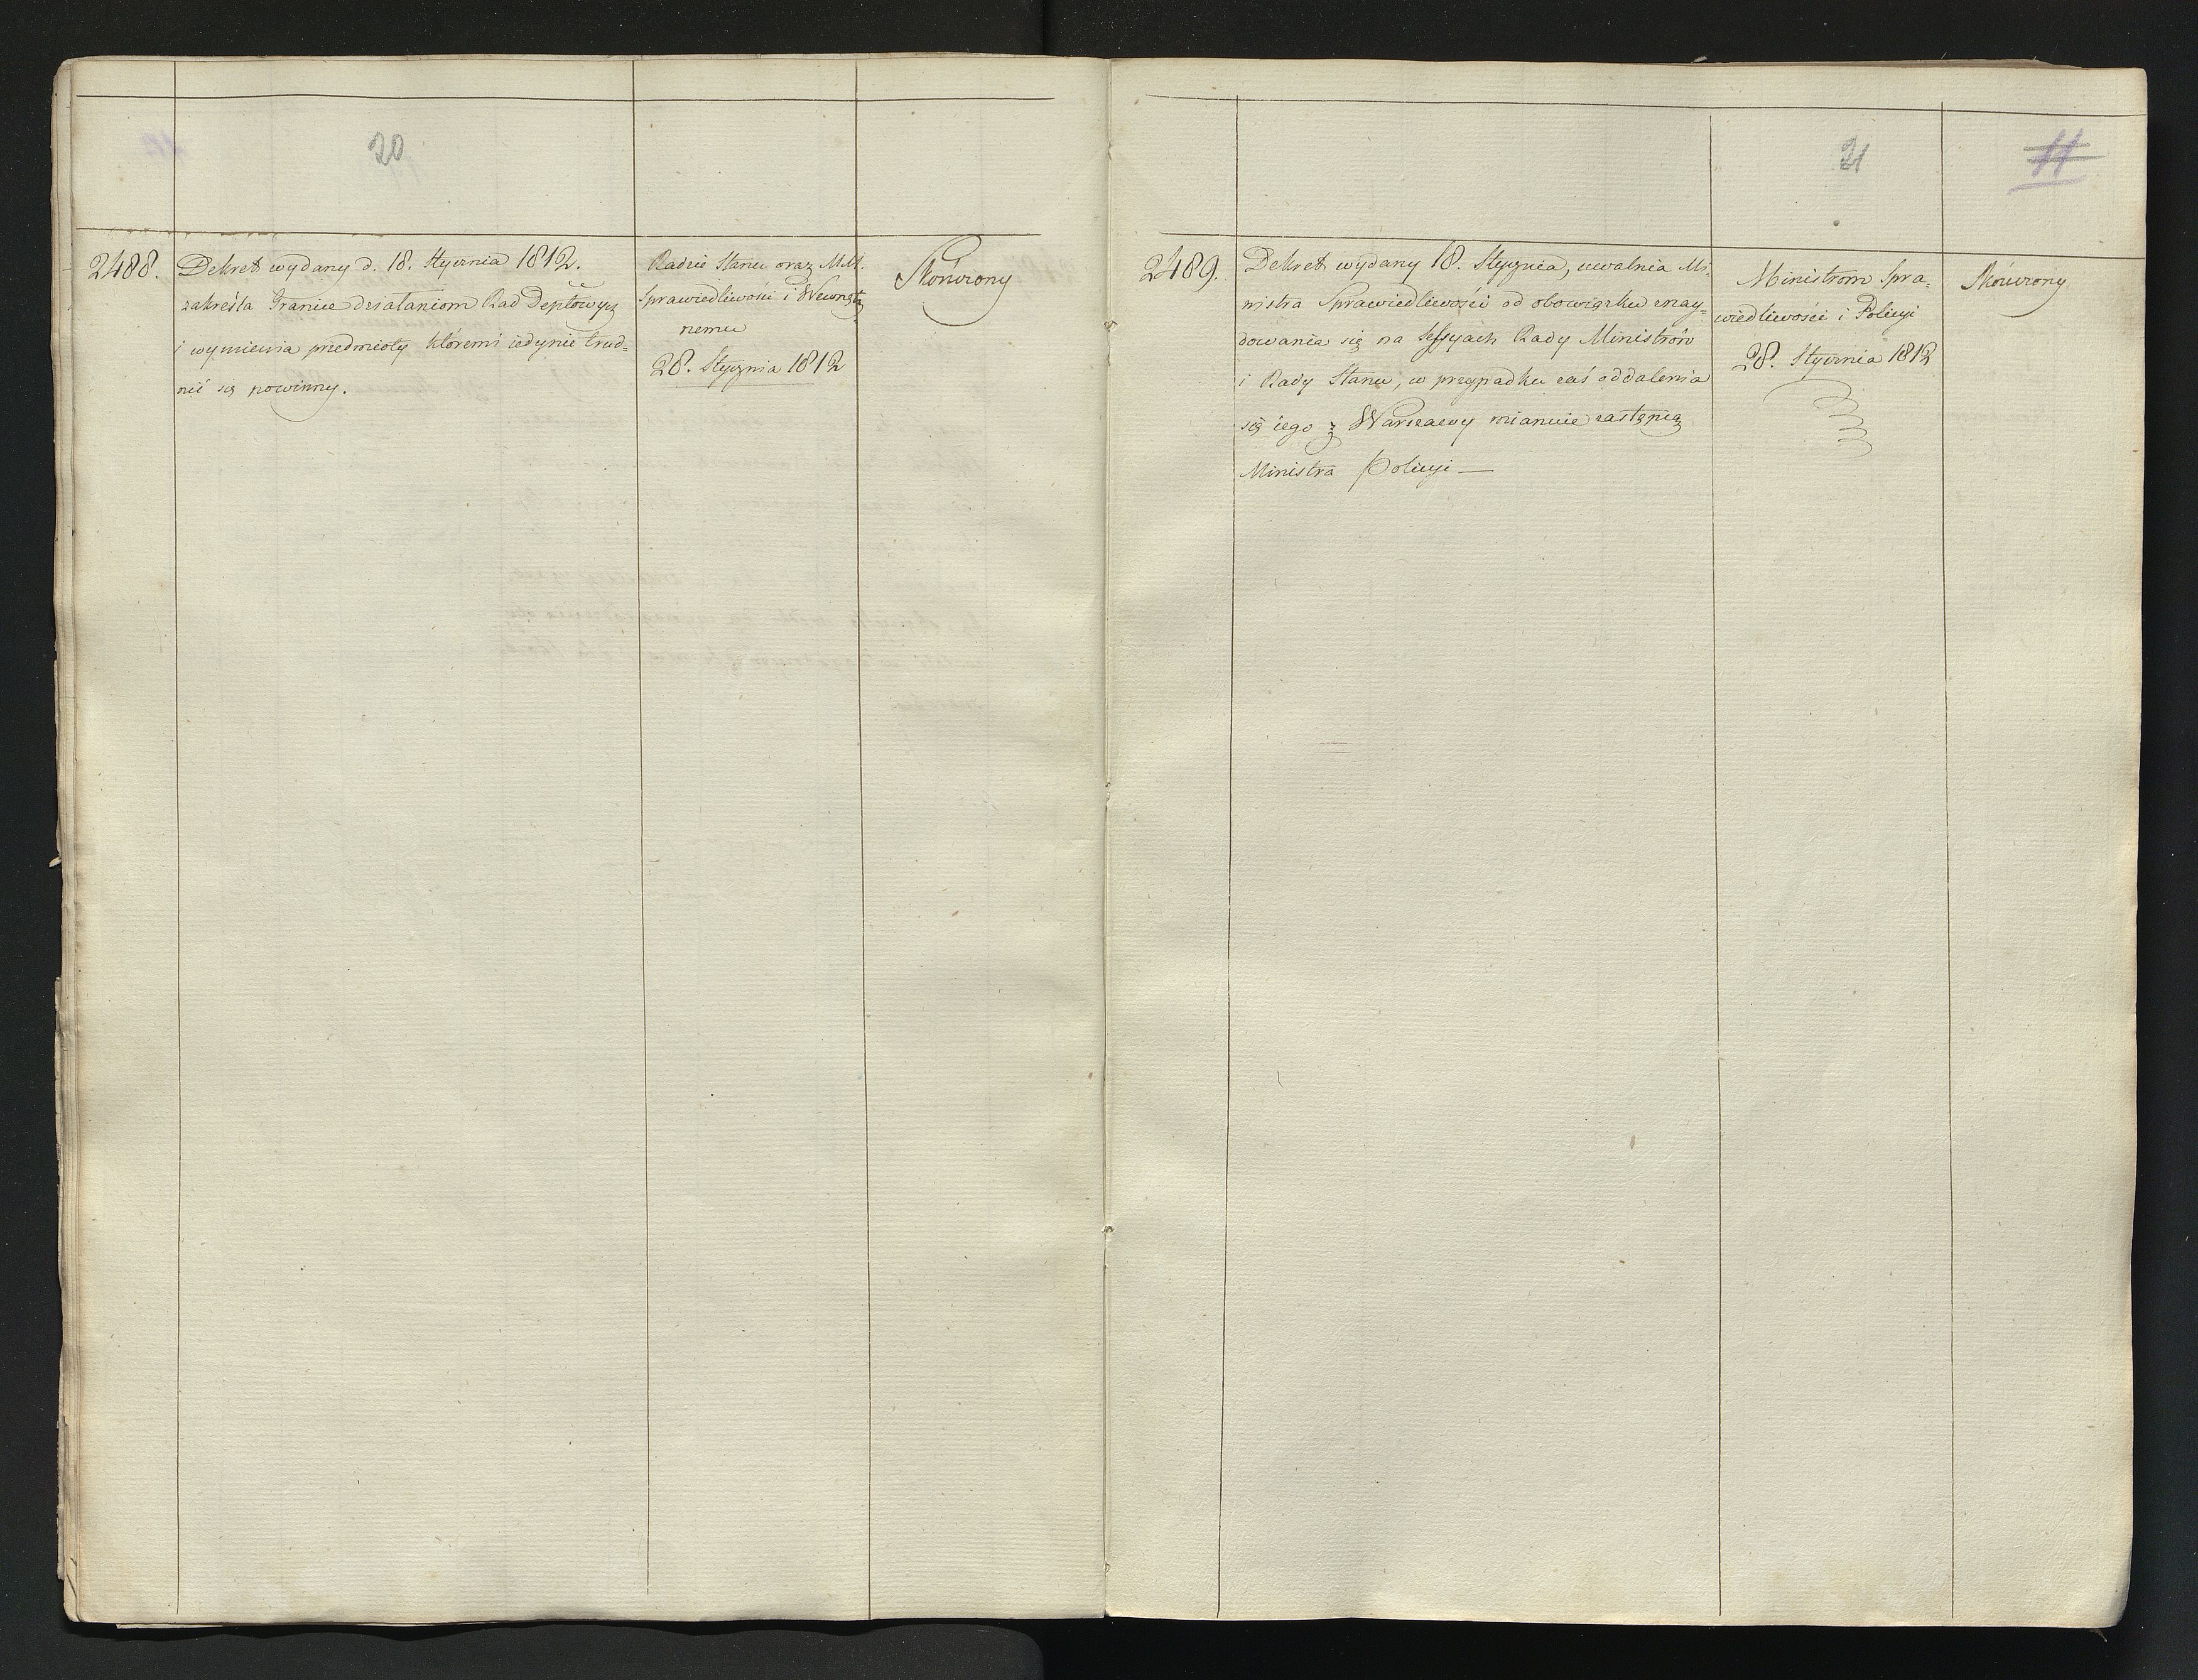 20
2488.
Dekret wydany d. 18. Stycznia 1812.
zakreśla Granice działaniom Rad Deptowych
i wymienia przedmioty któremi iedynie trud=
nić się powinny.
Radzie Stanu oraz MM.
Sprawiedliwości i Wewnętrz
nemu
28. Stycznia 1812
Skończony
21
11
2489.
Dekret wydany 18. Stycznia, uwalnia Mi=
nistra Sprawiedliwości od obowiązku znay=
dowania się na Sessyach Rady Ministrów
i Rady Stanu, w przypadku zaś oddalenia
się iego z Warszawy mianuie zastępcą
Ministra Policyi —
Ministrom Spra=
wiedliwości i Policyi
28. Stycznia 1812
Skończony